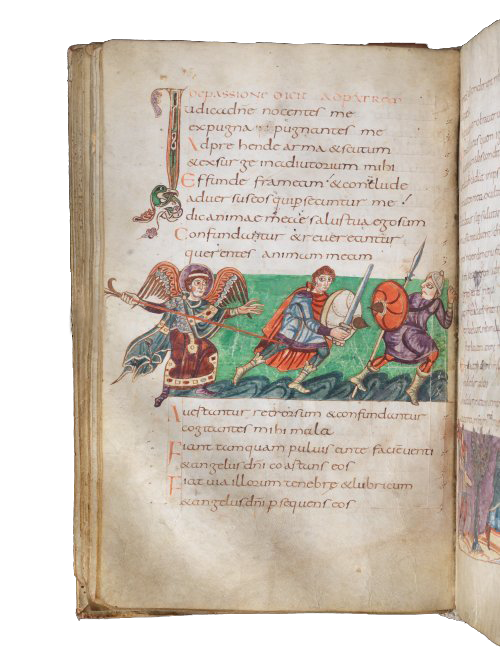 hocpassione dicit adpatrem
Iudicadñe nocentes me
expugna pugnantes me
Adprehende arma &scutum
&exsurge inadiutorium mihi
Effunde frameam &conclude
aduersus eos quipsecuntur me
dicanimae meae salustuaegosum
Confundantur &reuereantur
querentes animam meam
Auertantur retrorsum &confundantur
cogitantes mihi mala
Fiant tamquam puluis ante faciem uenti
&angelus dñi coartans eos
Fiat uia illorum tenebre &lubricum
&angelus dñi psequens eos